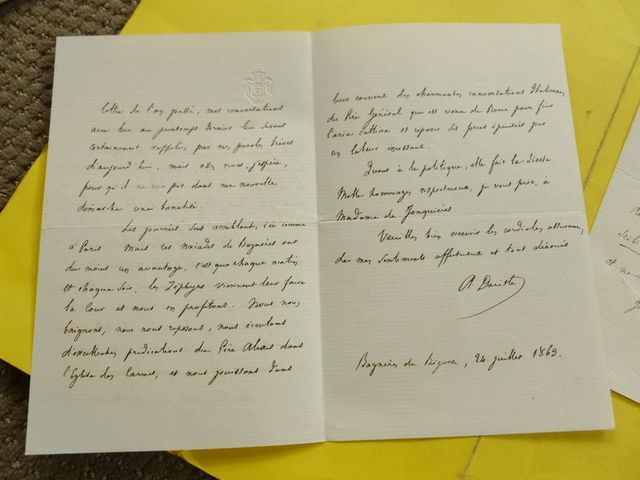 lettre de l'an passé, mes conversations
avec lui au printemps dernier lui seront
certainement rappelées par mes paroles brèves
d'aujourd'hui, mais
pour qu'il ne voie pas dans ma nouvelle
démarche une banalité.
Les journées sont accablantes, ici comme
à Paris. Mais ces naïades de Bagnères ont
du moins un avantage, c'est que chaque matin
et chaque soir, les Zéphyrs viennent leur faire
la Cour et nous en profitons. Nous nous
baignons, nous nous reposons, nous écoutons
d'excellentes prédications du Père Alexis dans
l'Eglise des Carmes, et nous jouissons dans
leur couvent des charmantes conversations Italiennes
du Père Général qui est venu de Rome pour
et reposer ses forces épuisées par
un labeur incessant.
Quant à la politique, elle fait la sieste.
Mille hommages respectueux, je vous prie, à
Madame de Jonquières.
Veuillez bien recevoir les cordiales assurances
de mes sentiments affectueux et tout dévoués
A Dariste
Bagnères de Bigorre, 24 juillet 1869.